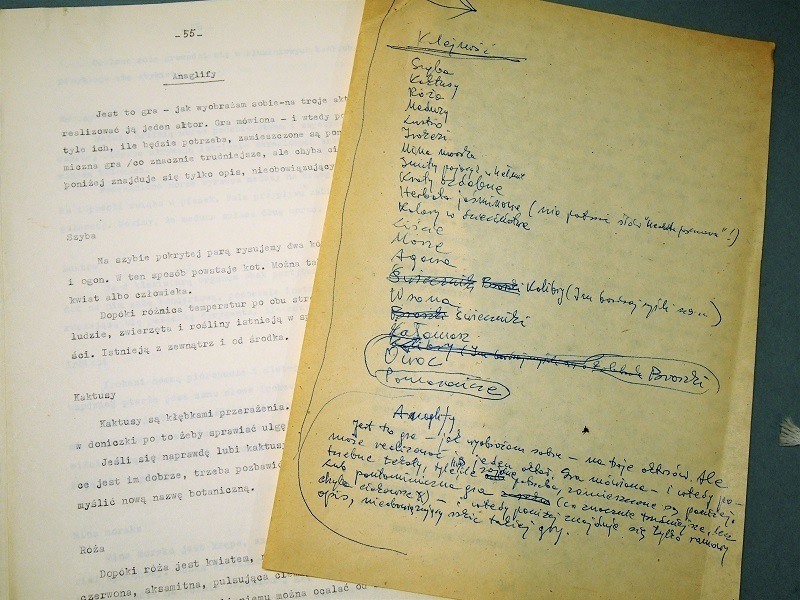 -55-
Anaglify
Jest to gra - jak wyobrażam sobie-na troje akt
realizować ją jeden aktor. Gra mówiona - i wtedy po
tyle ich, ile będzie potrzeba, zamieszczone są pon
miczna gra /co znacznie trudniejsze, ale chyba ci
poniżej znajduje się tylko opis, nieobowiązujący
Szyba
Na szybie pokrytej parą rysujemy dwa kó
i ogon. W ten sposób powstaje kot. Można ta
kwiat albo człowieka.
Dopóki różnica temperatur po obu str
ludzie, zwierzęta i rośliny istnieją w sp
ści. Istnieją z zewnątrz i od środka.
Kaktusy
Kaktusy są kłębkami przerażenia.
w doniczki po to żeby sprawiać ulgę
Jeśli się naprawdę lubi kaktusy
ce jest im dobrze, trzeba pozbawić
myślić nową nazwę botaniczną.
Róża
Dopóki róża jest kwiatem,
czerwona, aksamitna, pulsująca ciem
niemu można ocalać od
Kolejność
Szyba
Kaktusy
Róża
Meduzy
Lustro
Mina morska
Kraty ozdobne
Herbata jaśminowa (nie patrzeć słów !)
Kolory w
Liście
Morze
Agawa
Świeczniki Broszki Kolibry (Im bardziej myśli )
Wrona
Broszki Świeczniki
Kałamarz
Kolibry (Im bardziej myśli Broszki
Owoc
Pomarańcze
Anaglify
Jest to gra - jak wyobrażam sobie - na troje aktorów. Ale
może realizować ją jeden aktor. Gra mówiona - i wtedy po-
trzebne teksty, tyle ich, ile będzie potrzeba, zamieszczone są poniżej.
Lub pantomimiczna gra (co znacznie trudniejsze, lecz
chyba ciekawsze) - i wtedy poniżej znajduje się tylko ramowy
opis, nieobowiązujący szkic takiej gry.